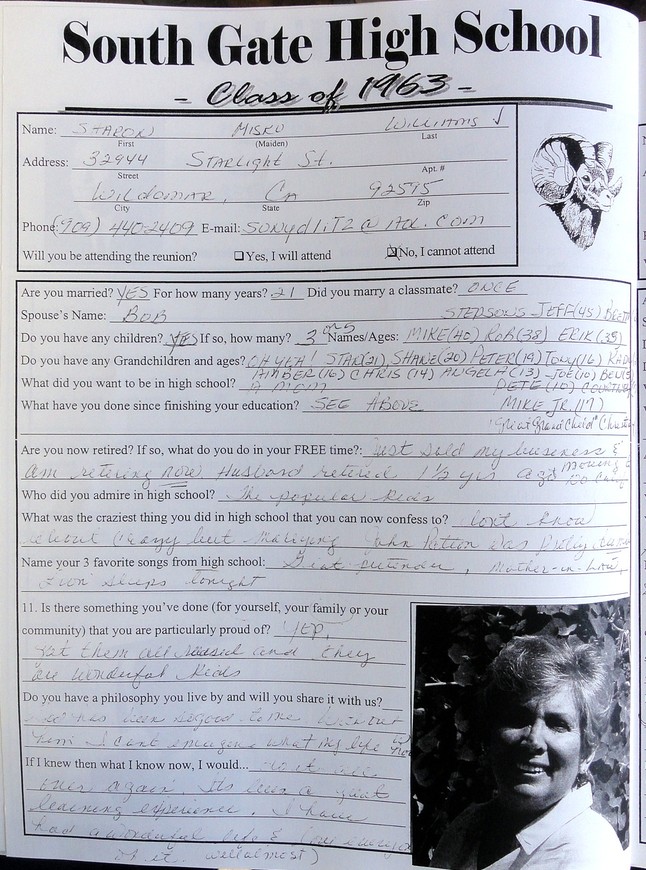 South Gate High School
- Class of 1963 -
Name: STARON MISKU WILLIAMS √
First (Maiden) Last
Address: 32944 STARLIGHT St.
Street Apt. #
WILDOMAR, CA 92595
City State Zip
Phone: (909) 440-2409 E-mail: SUNYdLITZ@AOL.COM
Will you be attending the reunion? Yes, I will attend No, I cannot attend
Are you married? YES For how many years? 21 Did you marry a classmate? ONCE
Spouse's Name: BOB STEPSONS JEFF (45)
Do you have any children? YES If so, how many? 3 or 5 Names/Ages: MIKE (40) ROB (38) ERIK (35)
Do you have any Grandchildren and ages? OH YEA! STAR (21), SHANE (20) PETER (19) TONY (16)
AMBER (16) CHRIS (14) ANGELA (13) JOE (10)
What did you want to be in high school? A MOM PETE (10)
What have you done since finishing your education? SEE ABOVE MIKE JR. (17)
"Great Grand Child"
Are you now retired? If so, what do you do in your FREE time?: Just sold my business &
am retiring now Husband retired 1 1/2 yrs ago moving
Who did you admire in high school? The popular kids
What was the craziest thing you did in high school that you can now confess to? don't know
about crazy but marrying John was
Name your 3 favorite songs from high school: Great pretender, Mother-in-Law,
Lion sleeps tonight
11. Is there something you've done (for yourself, your family or your
community) that you are particularly proud of? YEP,
Got them all raised and they
are wonderful kids
Do you have a philosophy you live by and will you share it with us?
has been so good to me without
him I cant emagine what my life
If I knew then what I know now, I would... do it all
over again. Its been a great
learning experience. I have
had a wonderful life &
of it. well almost)